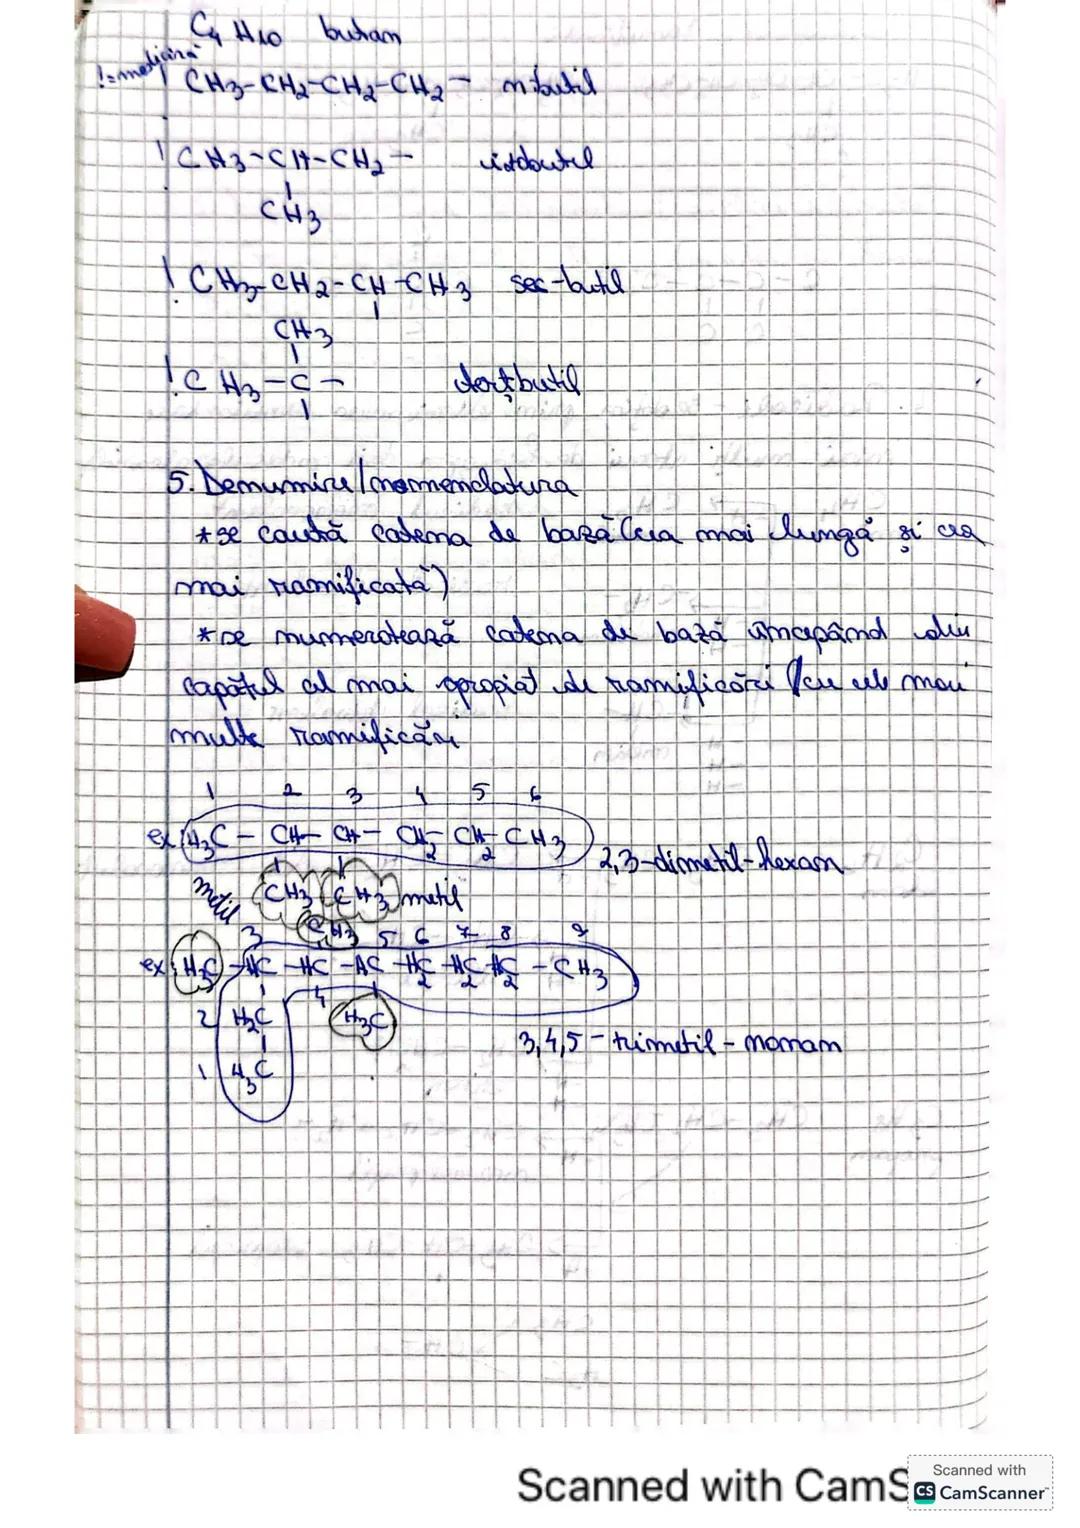 C4 H10 butan
!=medicină
! CH3-CH2-CH2-CH2- n-butil
! CH3-CH-CH2- izobutil
CH3
! CH3-CH2-CH-CH3 sec-butil
CH3
! CH3-C- terțbutil
5. Denumire/nomenclatura
*se caută catena de bază (cea mai lungă și cea
mai ramificată)
*se numerotează catena de bază începând din
capătul cel mai apropiat de ramificări (cu cele mai
multe ramificări
1 2 3 4 5 6
ex H3C - CH - CH - CH2 - CH2 - CH3 2,3-dimetil-hexan
metil CH3 CH3 metil
3 CH3 5 6 7 8 9
ex H3C - HC - HC - HC - H2C - H2C - H2C - CH3
2 H2C 4 H3C
3,4,5-trimetil-nonan
1 H3C
Scanned with CamS
Scanned with
CS CamScanner